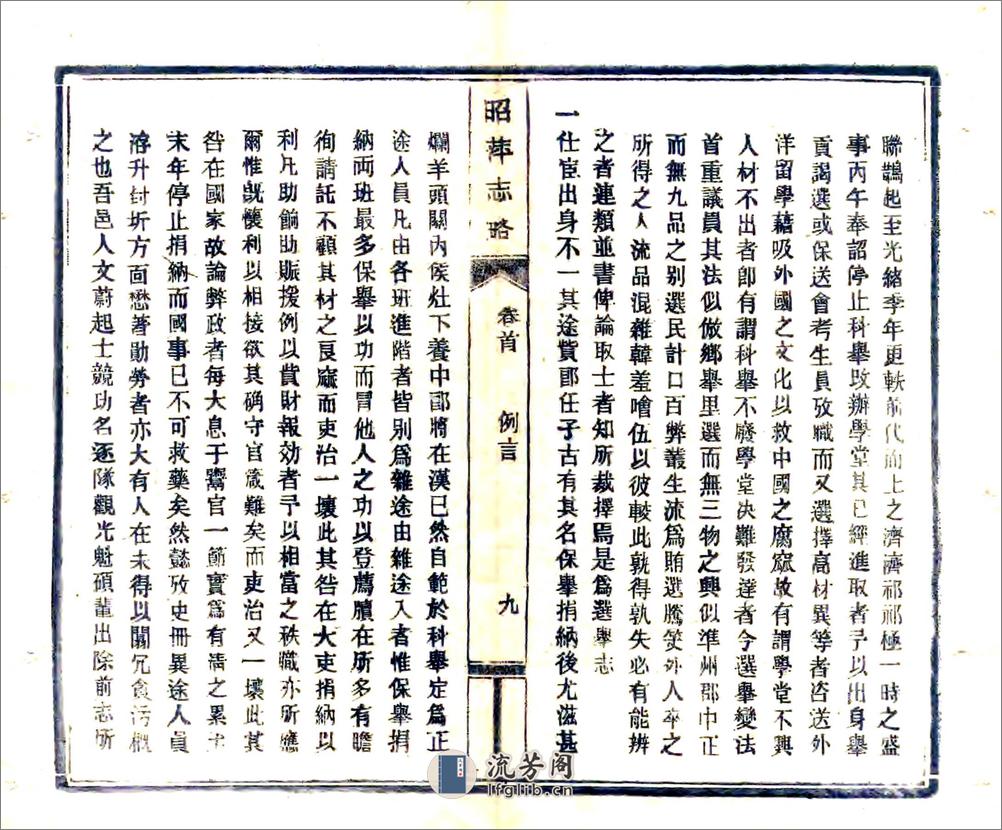 聯鵲起至光緒季年更軼前代而上之濟濟祁祁極一時之盛
事丙午奉詔停止科舉改辦學堂其已經進取者予以出身舉
貢謁選或保送會考生員攷職而又選擇高材異等者咨送外
洋留學藉吸外國之文化以救中國之腐窳故有謂學堂不興
人材不出者卽有謂科舉不廢學堂決難發達者今選舉變法
首重議員其法似倣鄉舉里選而無三物之興似準州郡中正
而無九品之別選民計口百弊叢生流爲賄選騰笑外人卒之
所得之人流品混雜韓羞噲伍以彼較此孰得孰失必有能辨
之者連類並書俾論取士者知所裁擇焉是爲選舉志
一仕宦出身不一其途貲郎任子古有其名保舉捐納後尤滋甚
昭萍志略
卷首
例言
九
爛羊頭關內侯灶下養中郎將在漢已然自範於科舉定爲正
途人員凡由各班進階者皆别爲雜途由雜途入者惟保舉捐
納両班最多保舉以功而冒他人之功以登薦牘在所多有瞻
徇請託不顧其材之良窳而吏治一壞此其咎在大吏捐納以
利凡助餉助賑援例以貲財報効者予以相當之秩職亦所應
爾惟旣懷利以相接欲其确守官箴難矣而吏治又一壞此其
咎在國家故論弊政者每大息于鬻官一節實爲有清之累
末年停止捐納而國事已不可救藥矣然懿攷史冊異途人員
洊升封圻方面懋著勛勞者亦大有人在未得以闒冗貪污概
之也吾邑人文蔚起士競功名逐隊觀光魁碩輩出除前志所
流芳阁
lfglib.cn